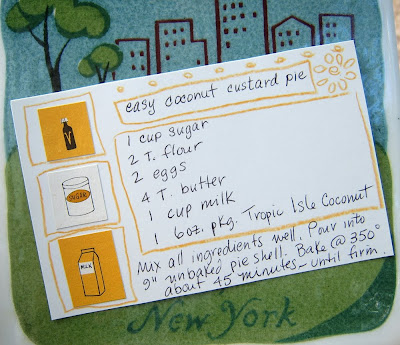 easy coconut custard pie
1 cup sugar
2 T. flour
2 eggs
4 T. butter
1 cup milk
1 6oz. pkg. Tropic Isle Coconut
Mix all ingredients well. Pour into
9" unbaked pie shell. Bake @ 350°
about 45 minutes - until firm.
SUGAR
MILK
New York